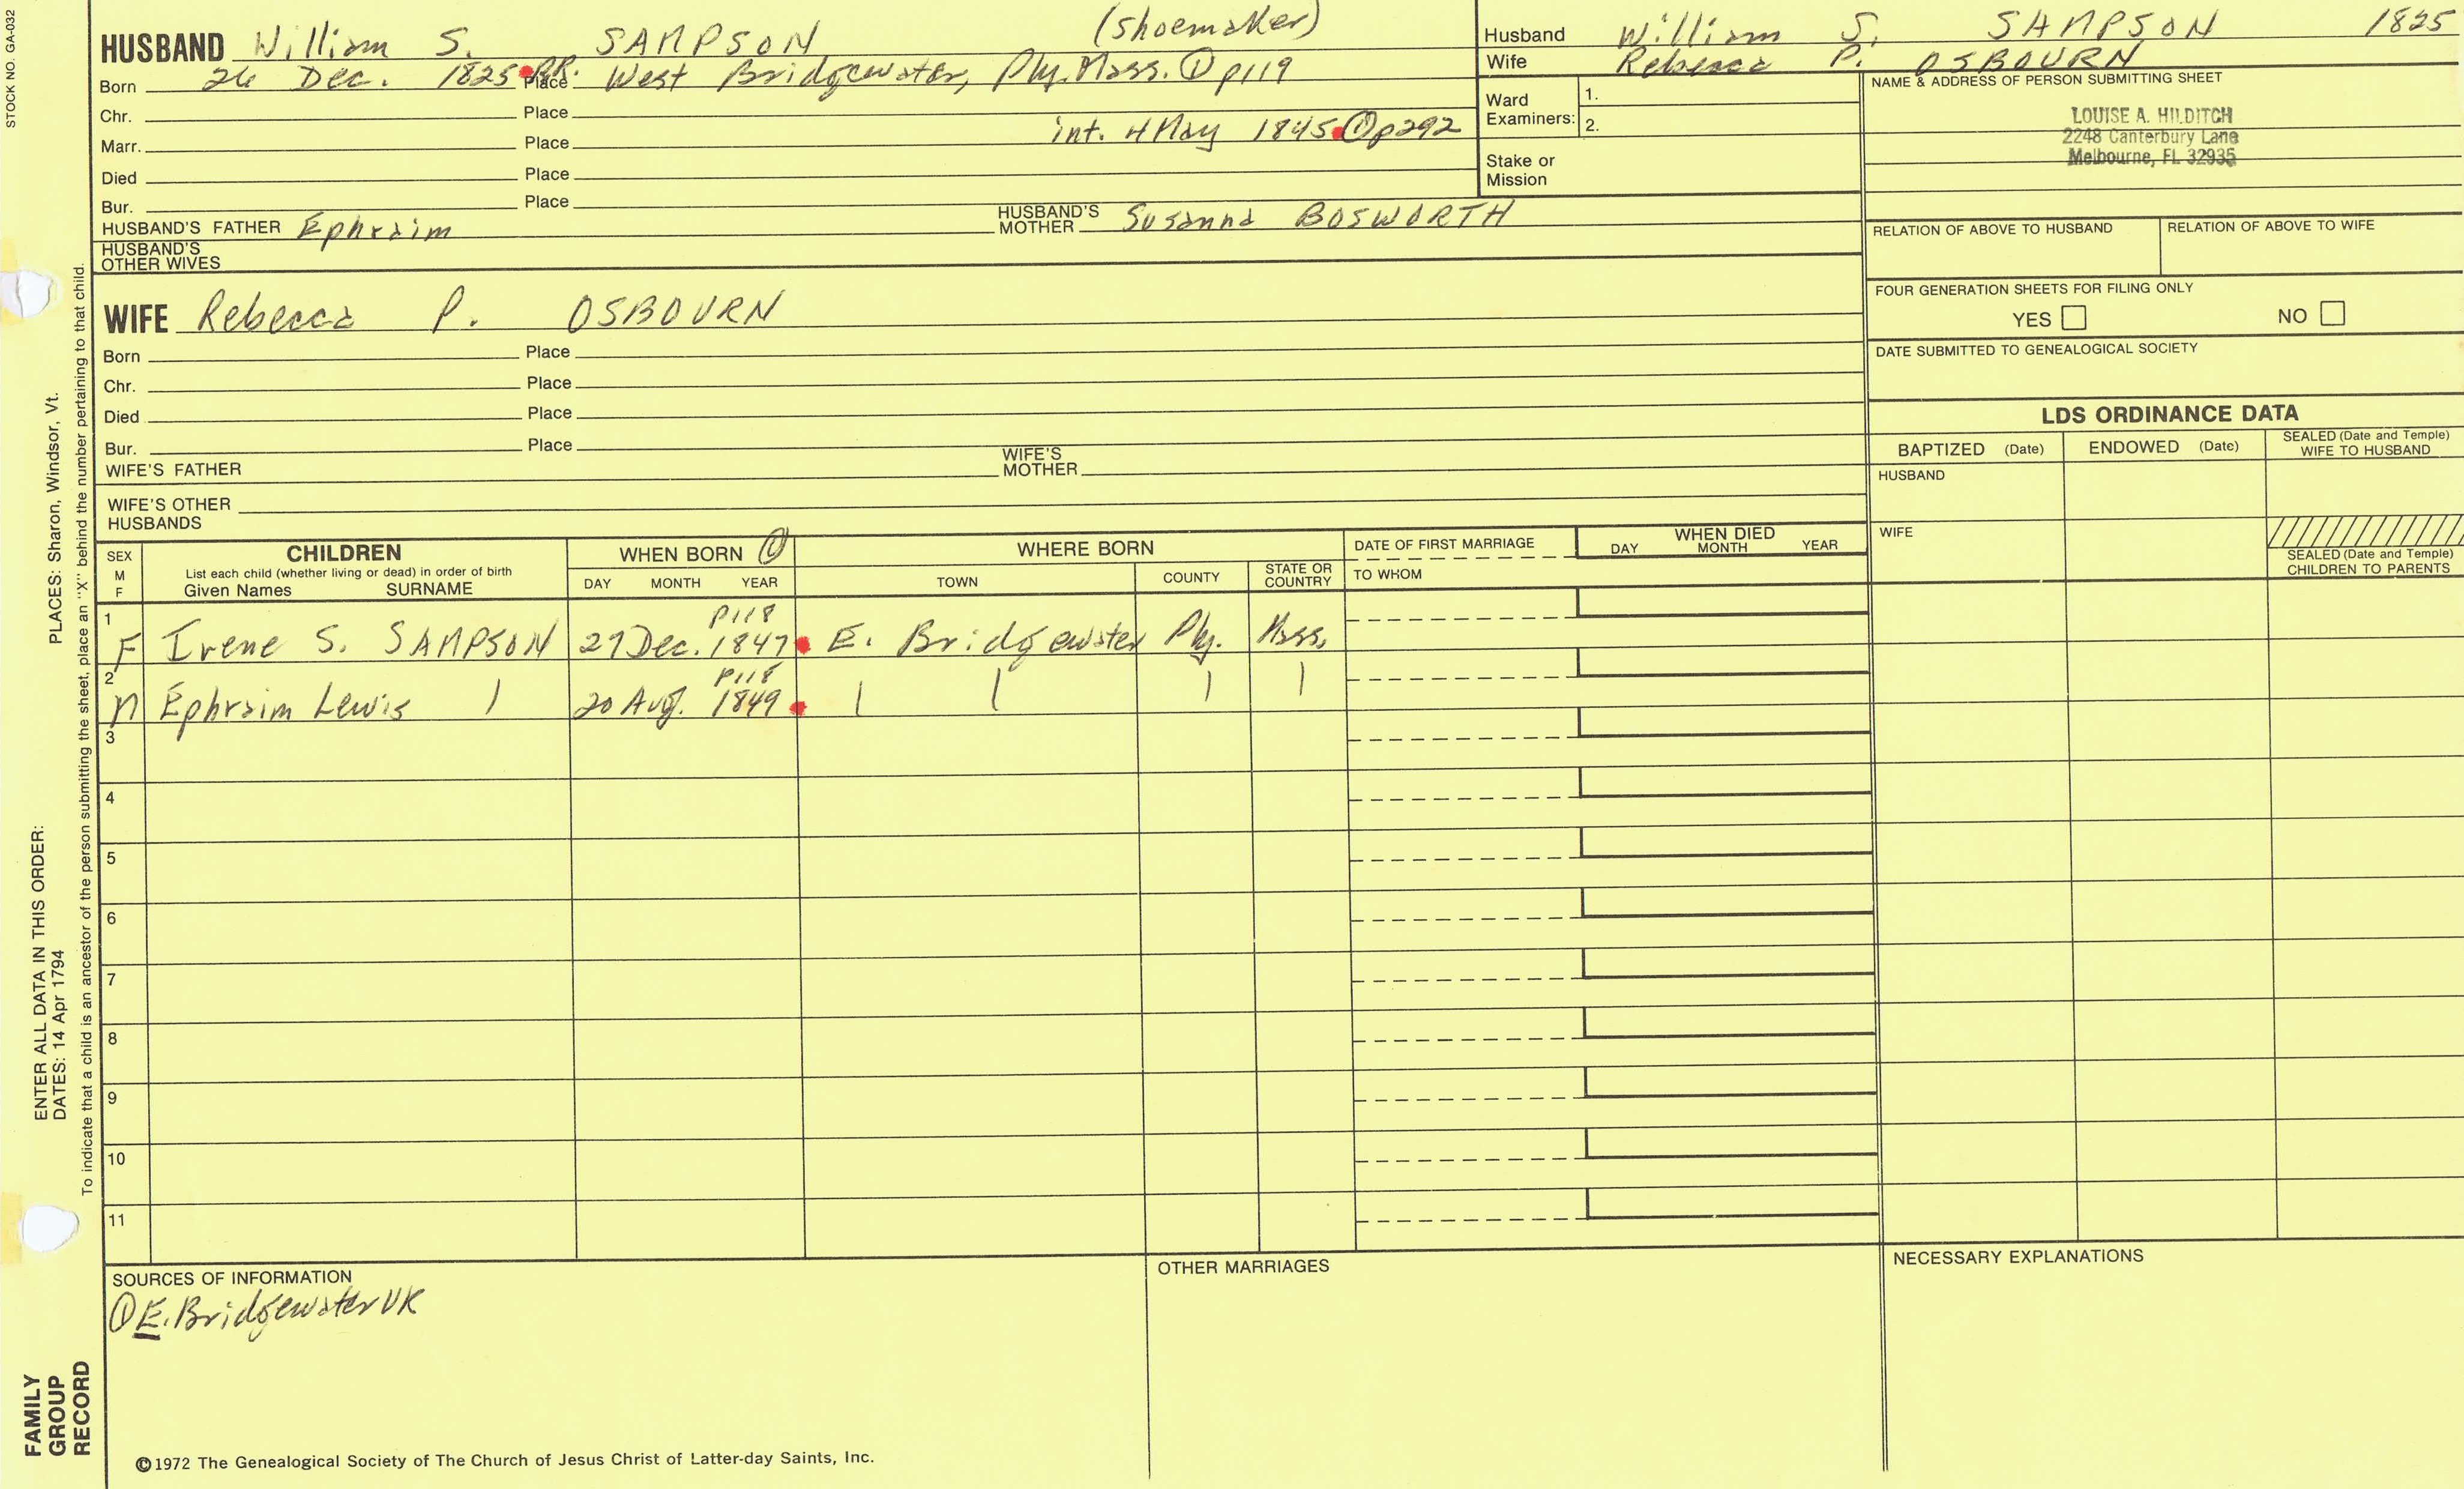 STOCK NO. GA-032
HUSBAND William S. SAMPSON (shoemaker)
Born 26 Dec. 1825 P.R. Place West Bridgewater, Ply. Mass. ① p119
Chr. Place
Marr. Place int. 4 May 1845 ① p292
Died Place
Bur. Place
HUSBAND'S FATHER Ephraim HUSBAND'S MOTHER Susanna BOSWORTH
HUSBAND'S OTHER WIVES
WIFE Rebecca P. OSBOURN
Born Place
Chr. Place
Died Place
Bur. Place
WIFE'S FATHER WIFE'S MOTHER
WIFE'S OTHER HUSBANDS
Husband William S. SAMPSON 1825
Wife Rebecca P. OSBOURN
Ward Examiners: 1.
2.
Stake or Mission
NAME & ADDRESS OF PERSON SUBMITTING SHEET
LOUISE A. HILDITCH
2248 Canterbury Lane
Melbourne, FL 32935
RELATION OF ABOVE TO HUSBAND RELATION OF ABOVE TO WIFE
FOUR GENERATION SHEETS FOR FILING ONLY
YES NO
DATE SUBMITTED TO GENEALOGICAL SOCIETY
LDS ORDINANCE DATA
BAPTIZED (Date) ENDOWED (Date) SEALED (Date and Temple) WIFE TO HUSBAND
HUSBAND
WIFE
SEALED (Date and Temple) CHILDREN TO PARENTS
SEX M F
CHILDREN
List each child (whether living or dead) in order of birth
Given Names SURNAME
WHEN BORN ①
DAY MONTH YEAR
WHERE BORN
TOWN COUNTY STATE OR COUNTRY
DATE OF FIRST MARRIAGE
TO WHOM
WHEN DIED
DAY MONTH YEAR
p118
1 F Irene S. SAMPSON 27 Dec. 1847 E. Bridgewater Ply. Mass.
p118
2 M Ephraim Lewis | 20 Aug. 1849 | | | |
3
4
5
6
7
8
9
10
11
SOURCES OF INFORMATION
① E. Bridgewater VR
OTHER MARRIAGES
NECESSARY EXPLANATIONS
©1972 The Genealogical Society of The Church of Jesus Christ of Latter-day Saints, Inc.
ENTER ALL DATA IN THIS ORDER:
DATES: 14 Apr 1794 PLACES: Sharon, Windsor, Vt.
To indicate that a child is an ancestor of the person submitting the sheet, place an "X" behind the number pertaining to that child.
FAMILY
GROUP
RECORD